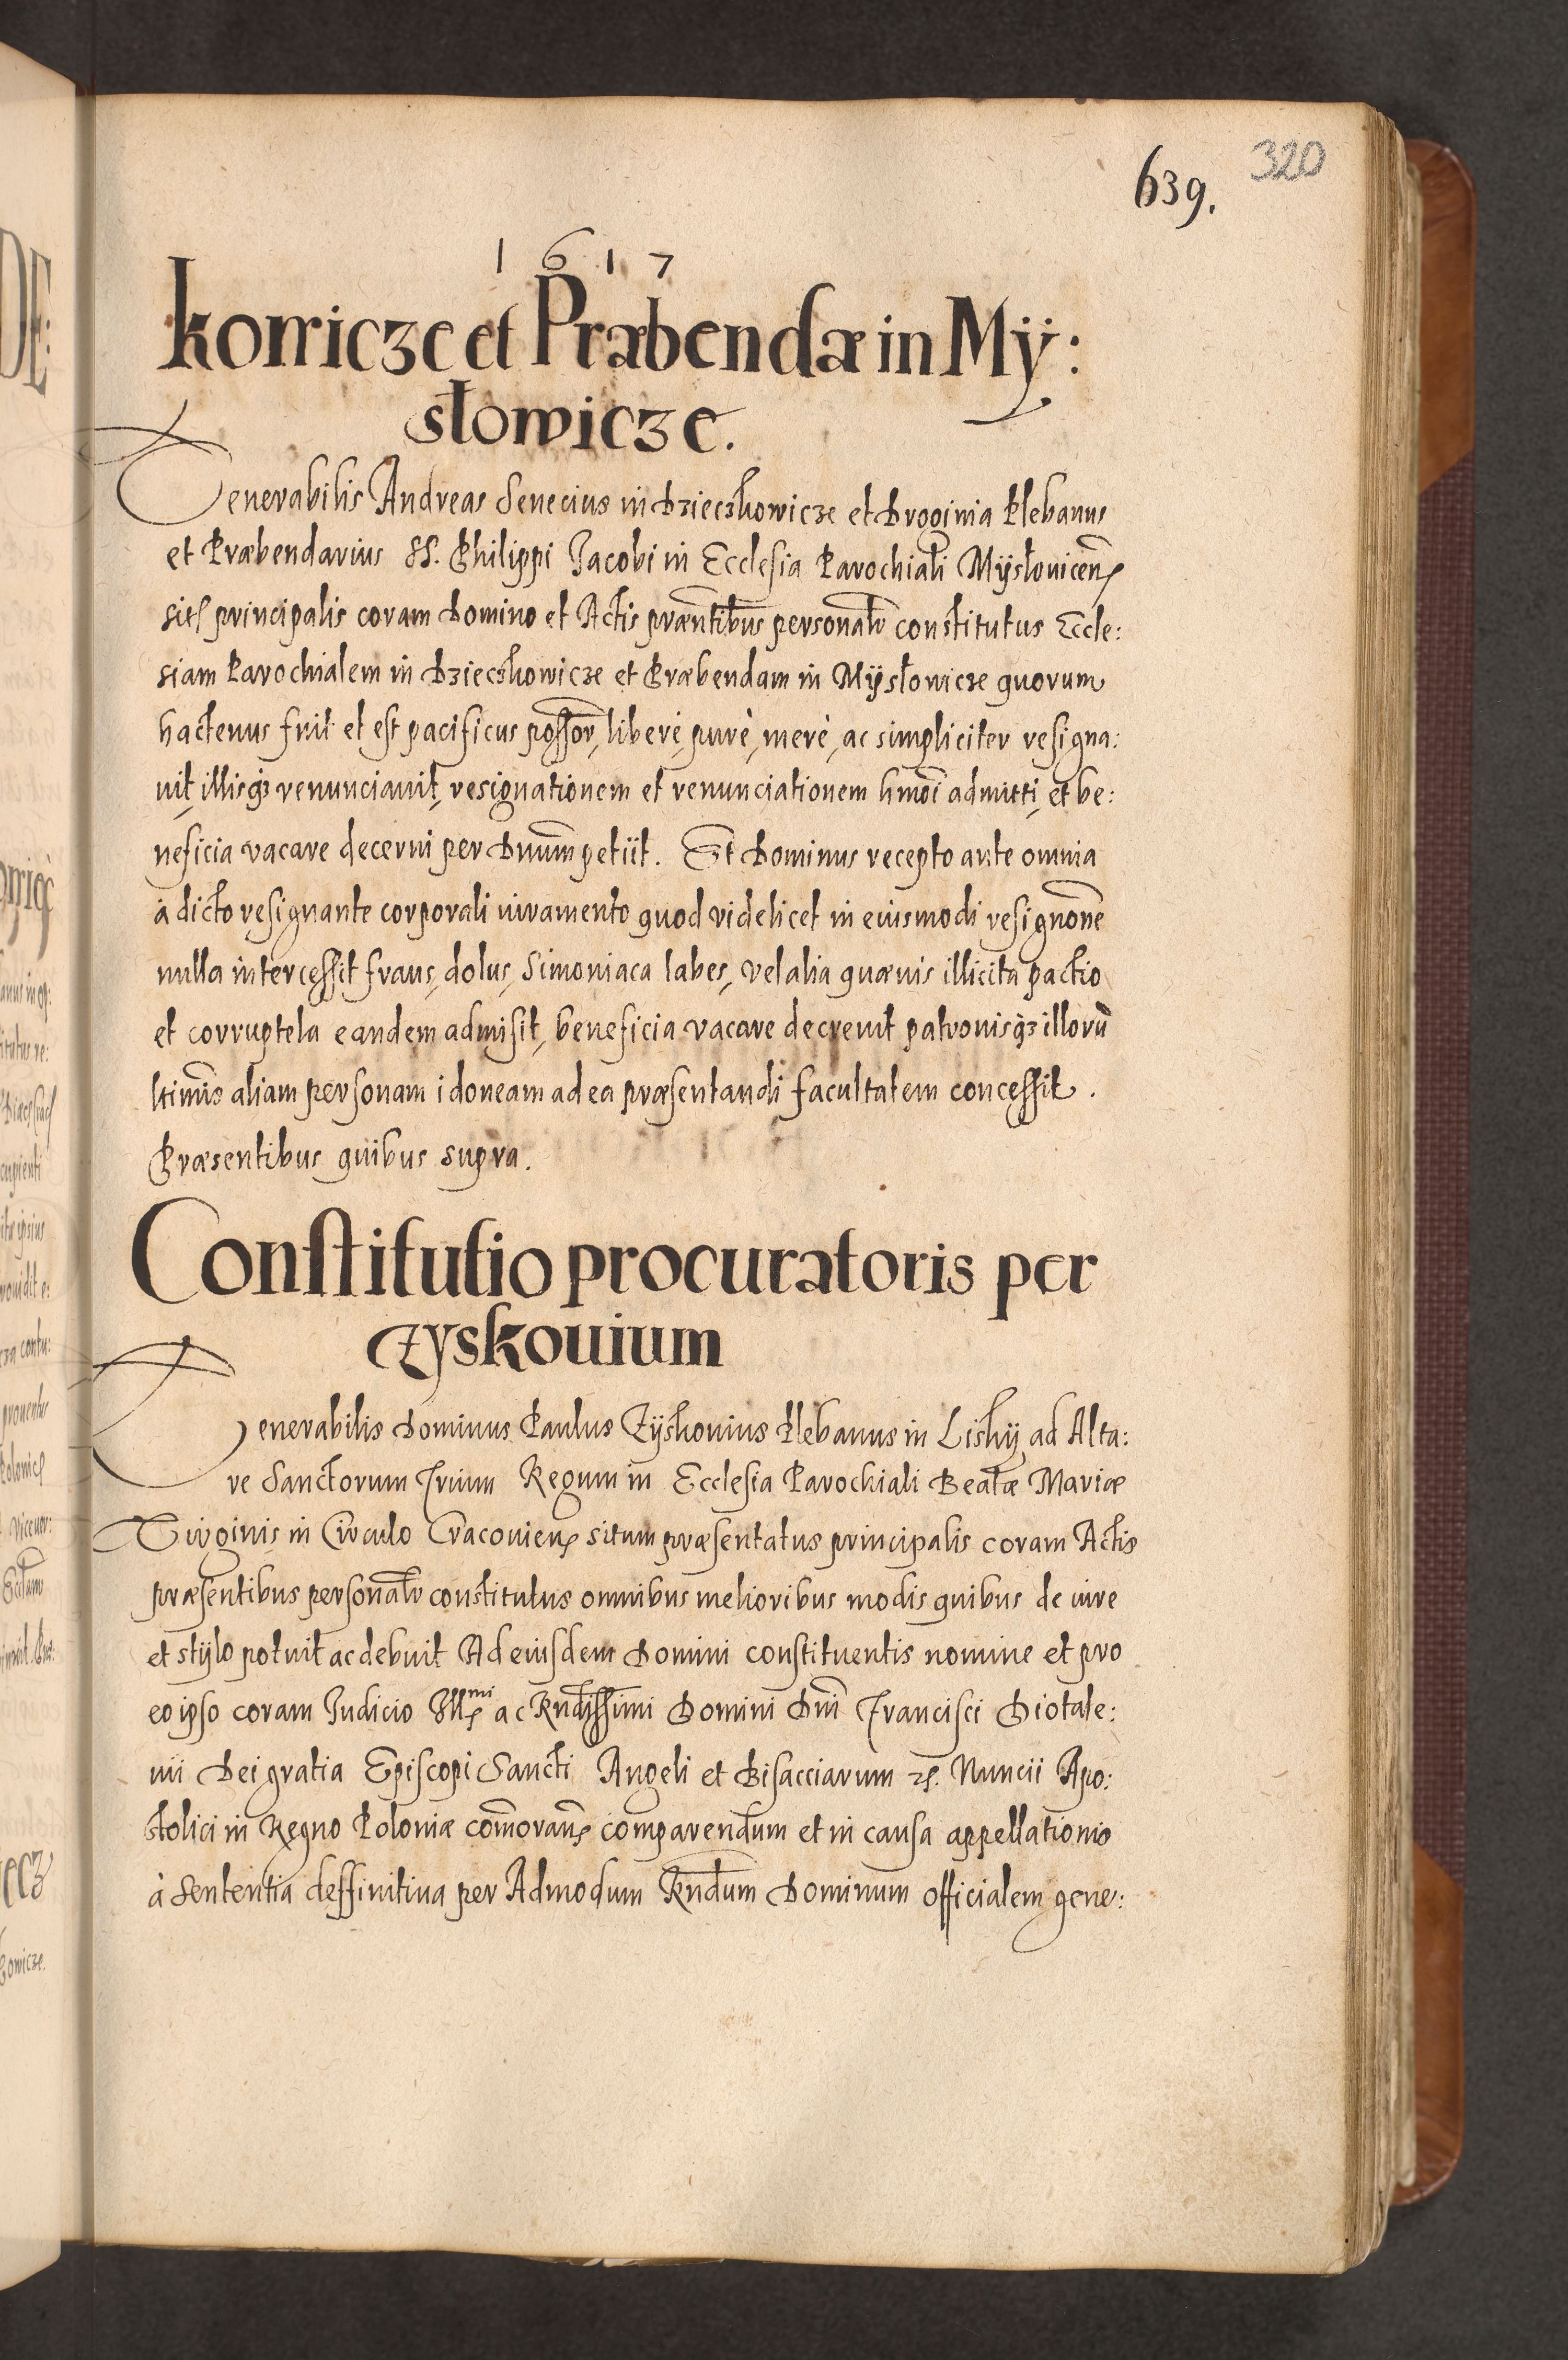 639. 320
1617
kowicze et Præbendæ in Mÿ:
słowicze.
Venerabilis Andreas Senecius in Dzieczkowicze et Droginia Plebanus
et Præbendarius SS. Philippi Jacobi in Ecclesia Parochiali Mÿsłovicen̄
principalis coram Domino et Actis præn̄tibus personal̄r constitutus Eccle:
siam Parochialem in Dzieckowicze et Præbendam in Mÿsłowicze quorum
hactenus fuit et est pacificus poss̄or, liberè, purè, merè, ac simpliciter resigna:
uit, illisq3 renunciauit, resignationem et renunciationem hmōi admitti, et be:
neficia vacare decerni per Dnum̄ petiit. Et Dominus recepto ante omnia
à dicto resignante corporali iuramento quod videlicet in eiusmodi resignōne
nulla intercessit fraus, dolus, Simoniaca labes, vel alia quæuis illicita pactio
et corruptela eandem admisit, beneficia vacare decreuit patronisq3 illorū
ltimis̄ aliam personam idoneam ad ea præsentandi facultatem concessit.
Præsentibus quibus supra.
Constitutio procuratoris per
Zyskouium
Venerabilis Dominus Paulus Zÿskouius Plebanus in Liskÿ ad Alta:
re Sanctorum Trium Regum in Ecclesia Parochiali Beatæ Mariæ
Virginis in Circulo Cracouien̄ situm præsentatus principalis coram Actis
præsentibus personal̄r constitutus omnibus melioribus modis quibus de iure
et stÿlo potuit ac debuit Ad eiusdem Domini constituentis nomine et pro
eo ipso coram Judicio Illmi ac Rnd̄issimi Domini Dn̄i Francisci Diotale:
uii Dei gratia Episcopi Sancti Angeli et Bisacciarum etc. Nuncii Apo:
stolici in Regno Poloniæ com̄oran̄ comparendum et in causa appellationis
à Sententia deffinitiua per Admodum Rnd̄um Dominum officialem gene: